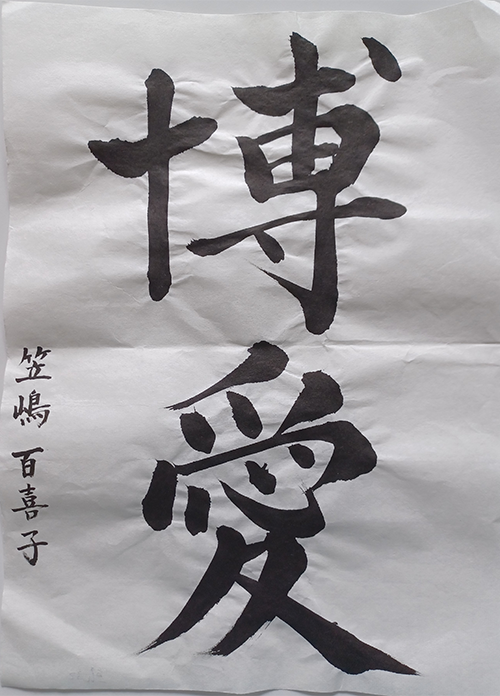 博愛
笠嶋 百喜子